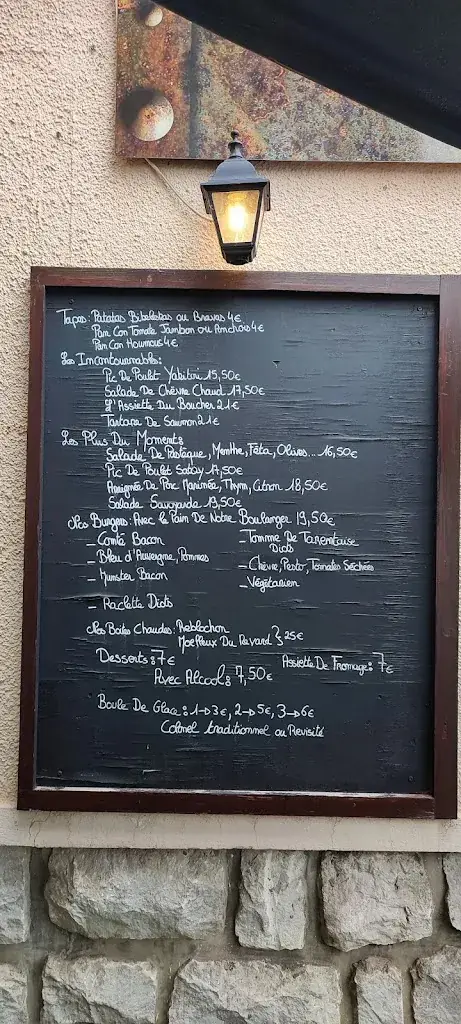 Tapas: Patatas Bibeleskas ou Bravas 4€
Pan Con Tomate Jambon ou Anchois 4€
Pan Con Houmous 4€
Les Incontournables:
Pic De Poulet Yakitori 15,50€
Salade De Chèvre Chaud 17,50€
L'Assiette Du Boucher 21€
Tartare De Saumon 21€
Les Plus Du Moments
Salade De Pastèque, Menthe, Féta, Olives... 16,50€
Pic De Poulet Satay 17,50€
Araignée De Porc Marinée, Thym, Citron 18,50€
Salade Savoyarde 19,50€
Nos Burgers: Avec le Pain De Notre Boulanger 19,50€
- Comté Bacon - Tomme De Tarentaise
Diots
- Bleu d'Auvergne, Pommes - Chèvre, Pesto, Tomates Séchées
- Munster Bacon - Végétarien
- Raclette Diots
Nos Boites Chaudes: Reblochon
Moelleux Du Revard } 25€
Desserts: 7€ Assiette De Fromage: 7€
Avec Alcool: 7,50€
Boule De Glace: 1→3€, 2→5€, 3→6€
Colonel traditionnel ou Revisité